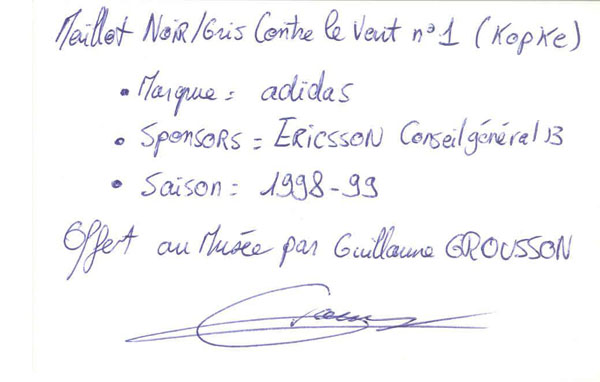 Maillot NOIR/GRIS Contre le Vent n°1 (KOPKE)
• Marque = adidas
• SPONSORS = ERICSSON Conseil général 13
• Saison = 1998-99
Offert au Musée par Guillaume GROUSSON